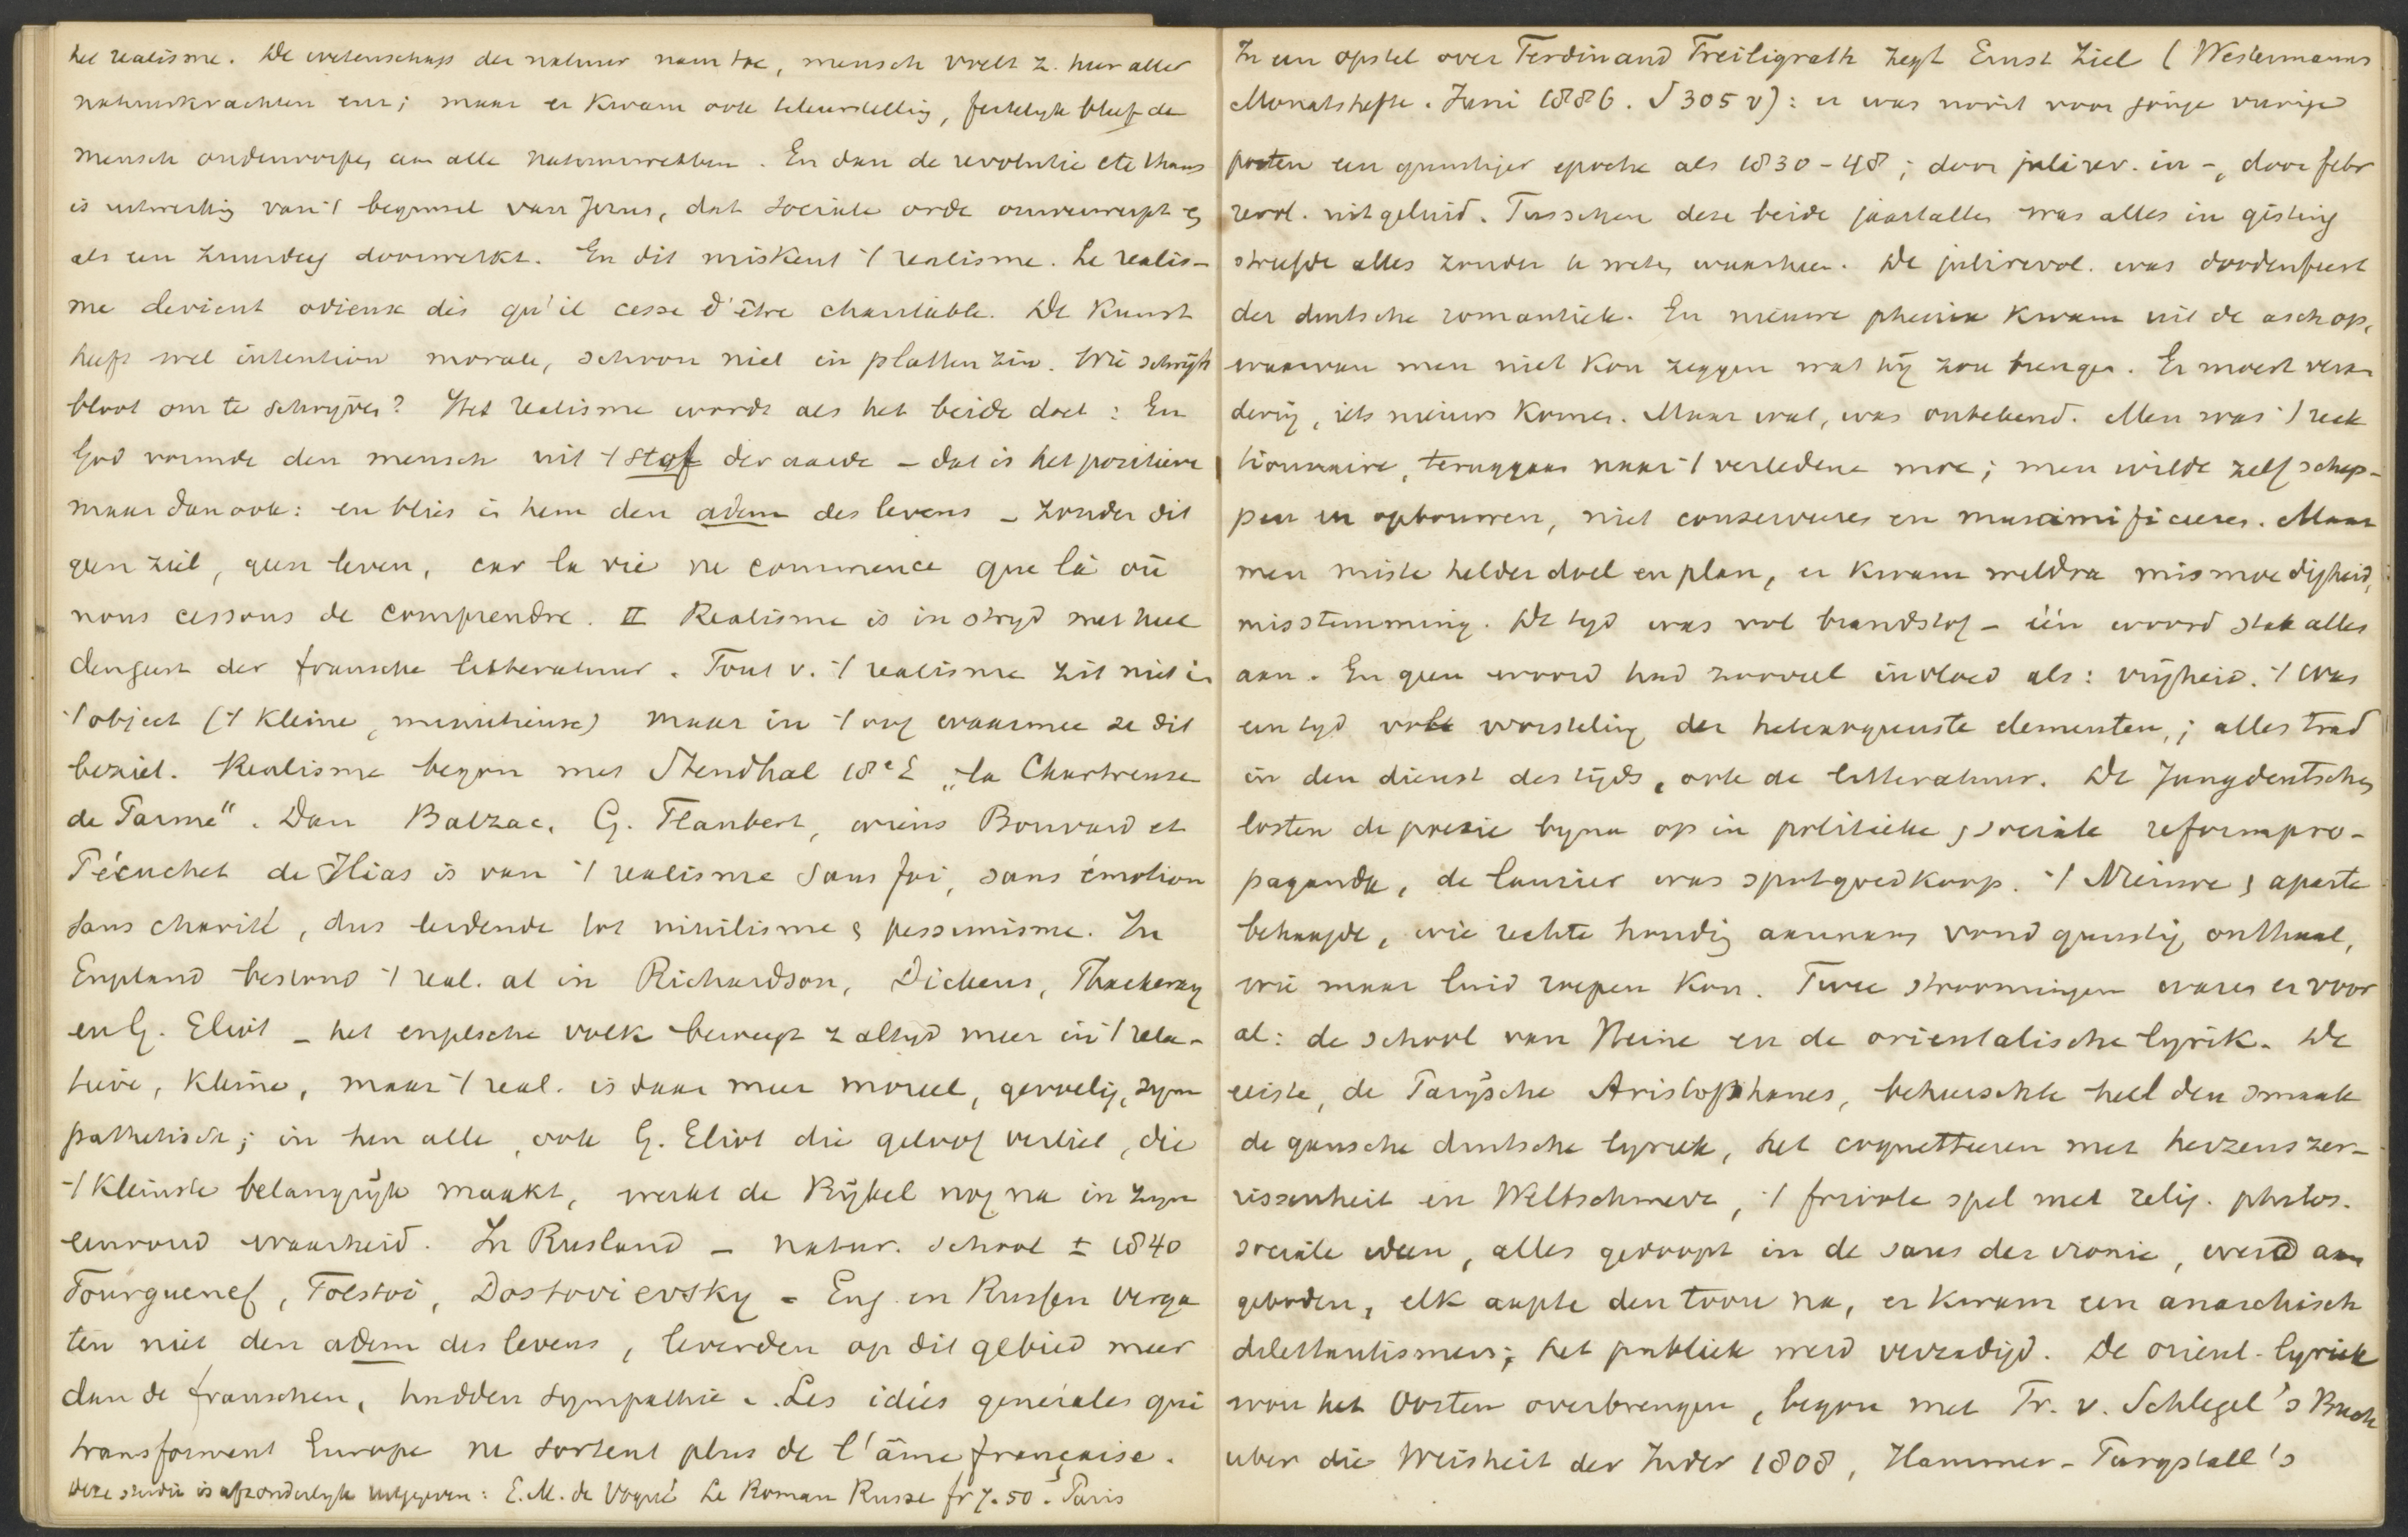 het realisme. De wetenschap der natuur nam toe, mensch vrelt z. heer aller
natuurkrachten enz; maar er kwam ook teleurstelling, feitelyk bleef de
mensch onderworpen aan alle natuurwetten. En dan de revolutie etc thans
is uitwerking van 't beginsel van Jezus, dat sociale orde omverwerpt &
als een zuurdeeg doorwerkt. En dit miskent 't realisme. Le realis-
me devient odieux dès qu'il cesse d'être charitable. De kunst
heeft wel intention morale, schoon niet in platten zin. Wie schrijft
bloot om te schryven? Het realisme wordt als het beide doet: En
God vormde den mensch uit 't stof der aarde – dat is het positieve
maar dan ook: en blies in hem den adem des levens – zonder dit
geen ziel, geen leven, car la vie ne commence que là où
nous cessons de comprendre. II Realisme is in stryd met heel
den geest der fransche litteratuur. Fout v. 't realisme zit niet in
't object ('t kleine, minutieuse) maar in 't oog waarmee ze dit
beziet. Realisme begon met Stendhal 18e E „la Chartreuse
de Parme". Dan Balzac. G. Flaubert, wiens Bouvard et
Pécuchet de Ilias is van 't realisme sans foi, sans émotion
sans charité, dus leidende tot nihilisme & pessimisme. In
England bestond 't real. al in Richardson, Dickens, Thackeray
en G. Eliot – het engelsche volk beweegt z altyd meer in 't rela-
tieve, kleine, maar 't real. is daar meer moreel, gevoelig, sym
pathetisch; in hen alle, ook G. Eliot die geloof verliet, die
't kleinste belangrijk maakt, werkt de Bijbel nog na in zyn
eenvoud waarheid. In Rusland – natur. school ± 1840
Tourguenef, Tolstoi, Dostovievsky – Eng. en Russen verga
ten niet den adem des levens, leverden op dit gebied meer
dan de franschen, hadden sympathie. Les idées generales qui
transforment Europe ne sortent plus de l'âme française.
Deze studie is afzonderlyk uitgegeven: E.M. de Vogué Le Roman Russe fr 7.50. Paris
In een opstel over Ferdinand Freiligrath zegt Ernst Ziel (Westermanns
Monatshefte. Juni 1886. S 305 v): er was nooit voor jonge vurige
poëten een gunstiger epoche als 1830-48; door juli rev. in –, door febr
revol. uitgeluid. Tusschen deze beide jaartallen was alles in gisting
streefde alles zonder te weten waarheen. De julirevol. was doodenfeest
der duitsche romantiek. En nieuwe phenix kwam uit de asch op,
waarvan men niet kon zeggen wat hij zou brengen. Er moest veran
dering, iets nieuws komen. Maar wat, was onbekend. Men was 't reak
tionnaire, teruggaan naar 't verledene moe; men wilde zelf schep-
pen en opbouwen, niet conserveeren en mumificeeren. Maar
men miste helder doel en plan, er kwam weldra mismoedigheid,
misstemming. De tyd was vol brandstof – één woord stak alles
aan. En geen woord had zooveel invloed als: vrijheid. 't was
een tyd volk worsteling der heterogeenste elementen,; alles trad
in den dienst des tijds, ook de litteratuur. De Jungdeutschen
losten de poezie byna op in politieke & sociale reformpro-
paganda, de laurier was spotgoedkoop. 't Nieuwe & aparte
behaagde, wie rechte houding aannam vond gunstig onthaal,
wie maar luid roepen kon. Twee stroomingen waren er voor
al: de school van Heine en de orientalische lyrik. De
eerste, de Parijsche Aristophanes, beheerschte heel den smaak
de gansche duitsche lyriek, het coquetteeren met herzenszer-
rissenheit en Weltschmerz, 't frivole spel met relig. philos.
sociale ideen, alles gedoopt in de saus der ironie, werd aan
geboden, elk aapte den toon na, er kwam een anarchisch
dilettantismus; het publiek werd verzadigd. De orient. lyriek
wou het Oosten overbrengen, begon met Fr. v. Schlegel's Buch
uber die Weisheit der Inder 1808, Hammer-Purgstall's